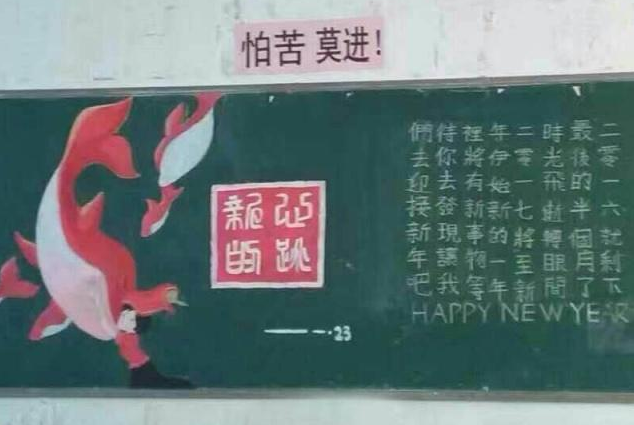 怕苦 莫进!
新的
心跳
—— 一·23
二零一六就剩下
最後的半個月了
時光飛逝轉眼間
二零一七將至新
年伊始新的一年
裡將有新事物等
待你去發現讓我
們去迎接新年吧
HAPPY NEW YEAR